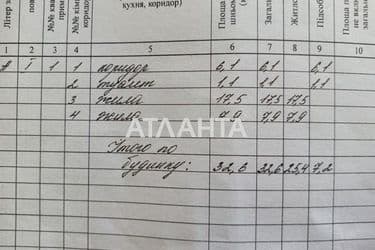 Літер з
пов
№№ ква
прим
№№ кім
коридор
кухня, коридор)
Площа
шньом
(
Загал
Житло
Підсоб
Площа п
не вклю
загаль
1 2 3 4 5 6 7 8 9 10
І 1 1 коридор 6,1 6,1 6,1
2 туалет 1,1 1,1 1,1
3 жила 17,5 17,5 17,5
4 жила 7,9 7,9 7,9
АТЛАНТА
Итого по
будинку: 32,6 32,6 25,4 7,2